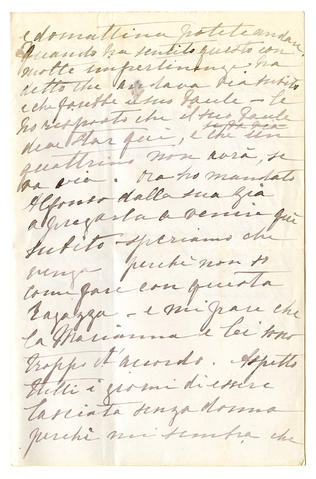 e domattina potete andare.
Quando ha sentito questo con
molte impertinenze ha
detto che andava via subito
e che
ho risposto che il suo baule
deve star qui, e che un
quattrino non avrà, se
va via. Ora ho mandato
Alfonso dalla sua zia
a pregarla a venire quì
subito - speriamo che
venga perchè non so
come fare con questa
ragazza - e mi pare che
la Marianna e lei sono
troppo d'accordo. Aspetto
tutti i giorni di essere
lasciata senza donna
perchè mi sembra che